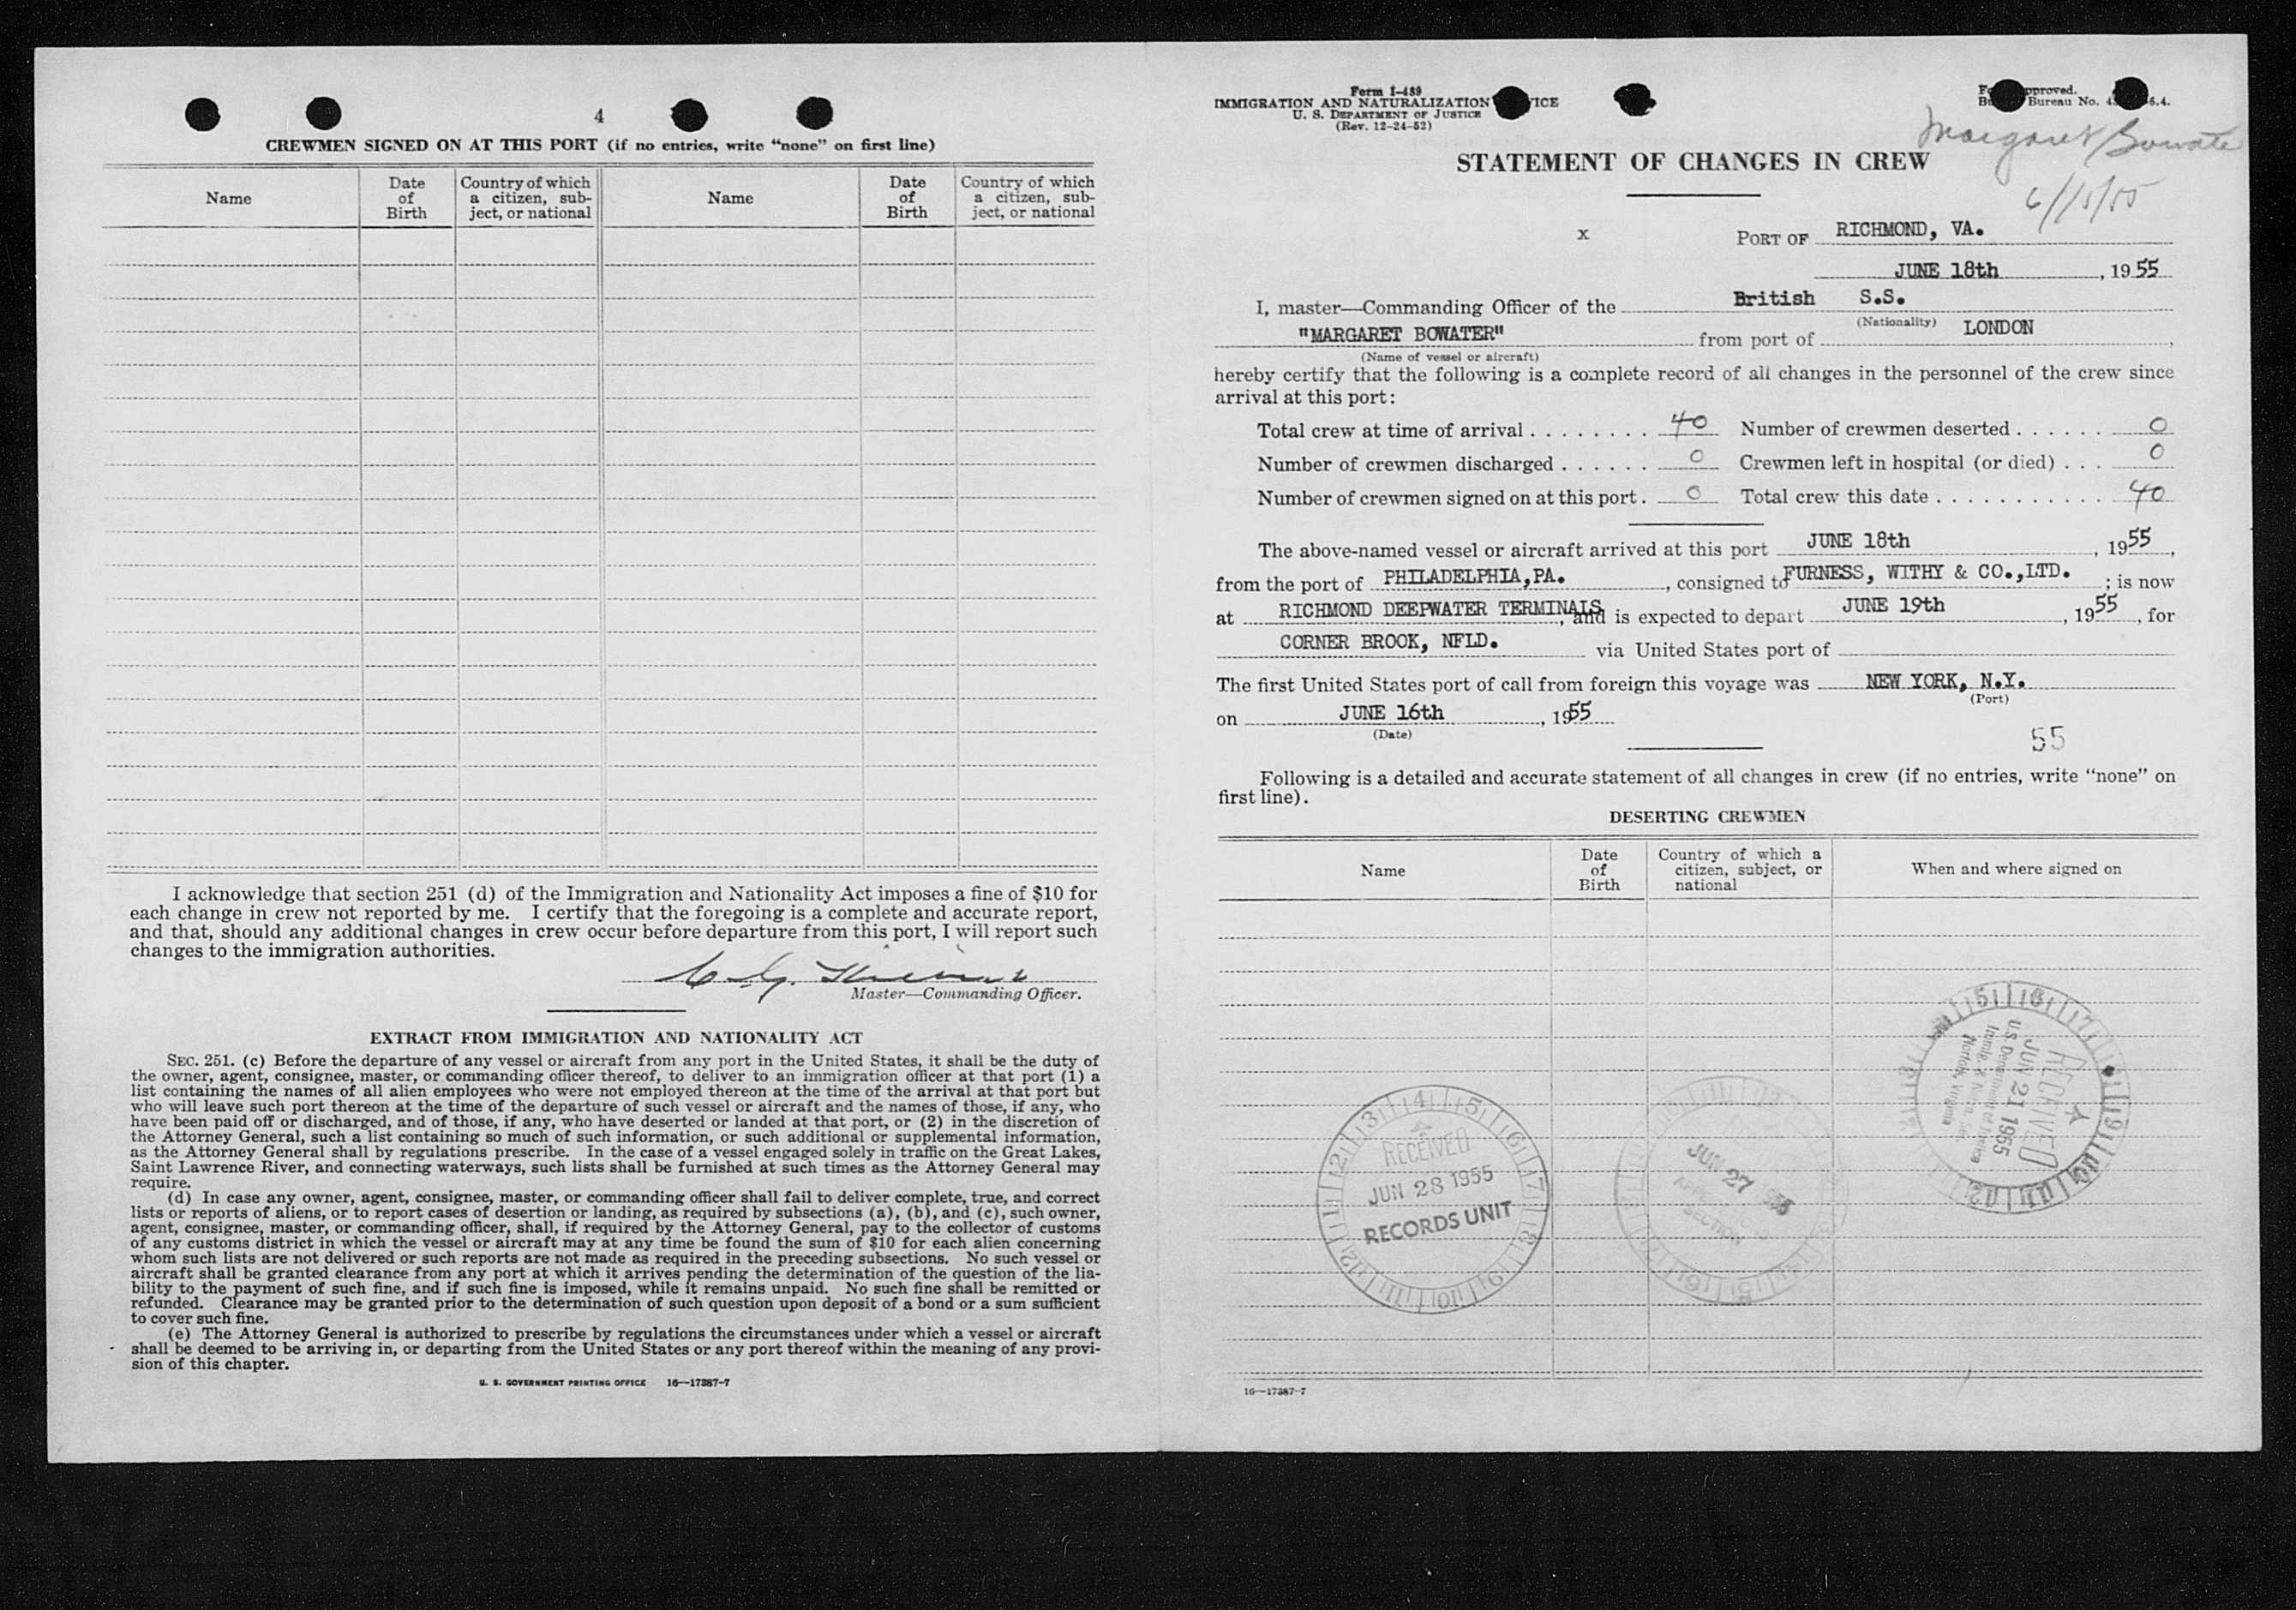 4
CREWMEN SIGNED ON AT THIS PORT (if no entries, write “none” on first line)
Name
Date of Birth
Country of which a citizen, subject, or national
Name
Date of Birth
Country of which a citizen, subject, or national
I acknowledge that section 251 (d) of the Immigration and Nationality Act imposes a fine of $10 for
each change in crew not reported by me. I certify that the foregoing is a complete and accurate report,
and that, should any additional changes in crew occur before departure from this port, I will report such
changes to the immigration authorities.
Master—Commanding Officer.
EXTRACT FROM IMMIGRATION AND NATIONALITY ACT
SEC. 251. (c) Before the departure of any vessel or aircraft from any port in the United States, it shall be the duty of
the owner, agent, consignee, master, or commanding officer thereof, to deliver to an immigration officer at that port (1) a
list containing the names of all alien employees who were not employed thereon at the time of the arrival at that port but
who will leave such port thereon at the time of the departure of such vessel or aircraft and the names of those, if any, who
have been paid off or discharged, and of those, if any, who have deserted or landed at that port, or (2) in the discretion of
the Attorney General, such a list containing so much of such information, or such additional or supplemental information,
as the Attorney General shall by regulations prescribe. In the case of a vessel engaged solely in traffic on the Great Lakes,
Saint Lawrence River, and connecting waterways, such lists shall be furnished at such times as the Attorney General may
require.
(d) In case any owner, agent, consignee, master, or commanding officer shall fail to deliver complete, true, and correct
lists or reports of aliens, or to report cases of desertion or landing, as required by subsections (a), (b), and (c), such owner,
agent, consignee, master, or commanding officer, shall, if required by the Attorney General, pay to the collector of customs
of any customs district in which the vessel or aircraft may at any time be found the sum of $10 for each alien concerning
whom such lists are not delivered or such reports are not made as required in the preceding subsections. No such vessel or
aircraft shall be granted clearance from any port at which it arrives pending the determination of the question of the lia-
bility to the payment of such fine, and if such fine is imposed, while it remains unpaid. No such fine shall be remitted or
refunded. Clearance may be granted prior to the determination of such question upon deposit of a bond or a sum sufficient
to cover such fine.
(e) The Attorney General is authorized to prescribe by regulations the circumstances under which a vessel or aircraft
shall be deemed to be arriving in, or departing from the United States or any port thereof within the meaning of any provi-
sion of this chapter.
U. S. GOVERNMENT PRINTING OFFICE 16—17387-7
Form I-489
IMMIGRATION AND NATURALIZATION
U. S. DEPARTMENT OF JUSTICE
(Rev. 12-24-52)
Bureau No.
Margaret Bowater
6/15/55
STATEMENT OF CHANGES IN CREW
x PORT OF RICHMOND, VA.
JUNE 18th, 1955
I, master—Commanding Officer of the British S.S.
(Nationality)
"MARGARET BOWATER" from port of LONDON,
(Name of vessel or aircraft)
hereby certify that the following is a complete record of all changes in the personnel of the crew since
arrival at this port:
Total crew at time of arrival 40 Number of crewmen deserted 0
Number of crewmen discharged 0 Crewmen left in hospital (or died) 0
Number of crewmen signed on at this port. 0 Total crew this date 40
The above-named vessel or aircraft arrived at this port JUNE 18th, 1955,
from the port of PHILADELPHIA,PA., consigned to FURNESS, WITHY & CO.,LTD.; is now
at RICHMOND DEEPWATER TERMINALS, and is expected to depart JUNE 19th, 1955, for
CORNER BROOK, NFLD. via United States port of
The first United States port of call from foreign this voyage was NEW YORK, N.Y.
(Port)
on JUNE 16th, 1955
(Date)
55
Following is a detailed and accurate statement of all changes in crew (if no entries, write “none” on
first line).
DESERTING CREWMEN
Name
Date of Birth
Country of which a citizen, subject, or national
When and where signed on
RECEIVED
JUN 21 1955
Norfolk, Virginia
RECEIVED
JUN 28 1955
RECORDS UNIT
JUN 27
SECTION
16—17387-7